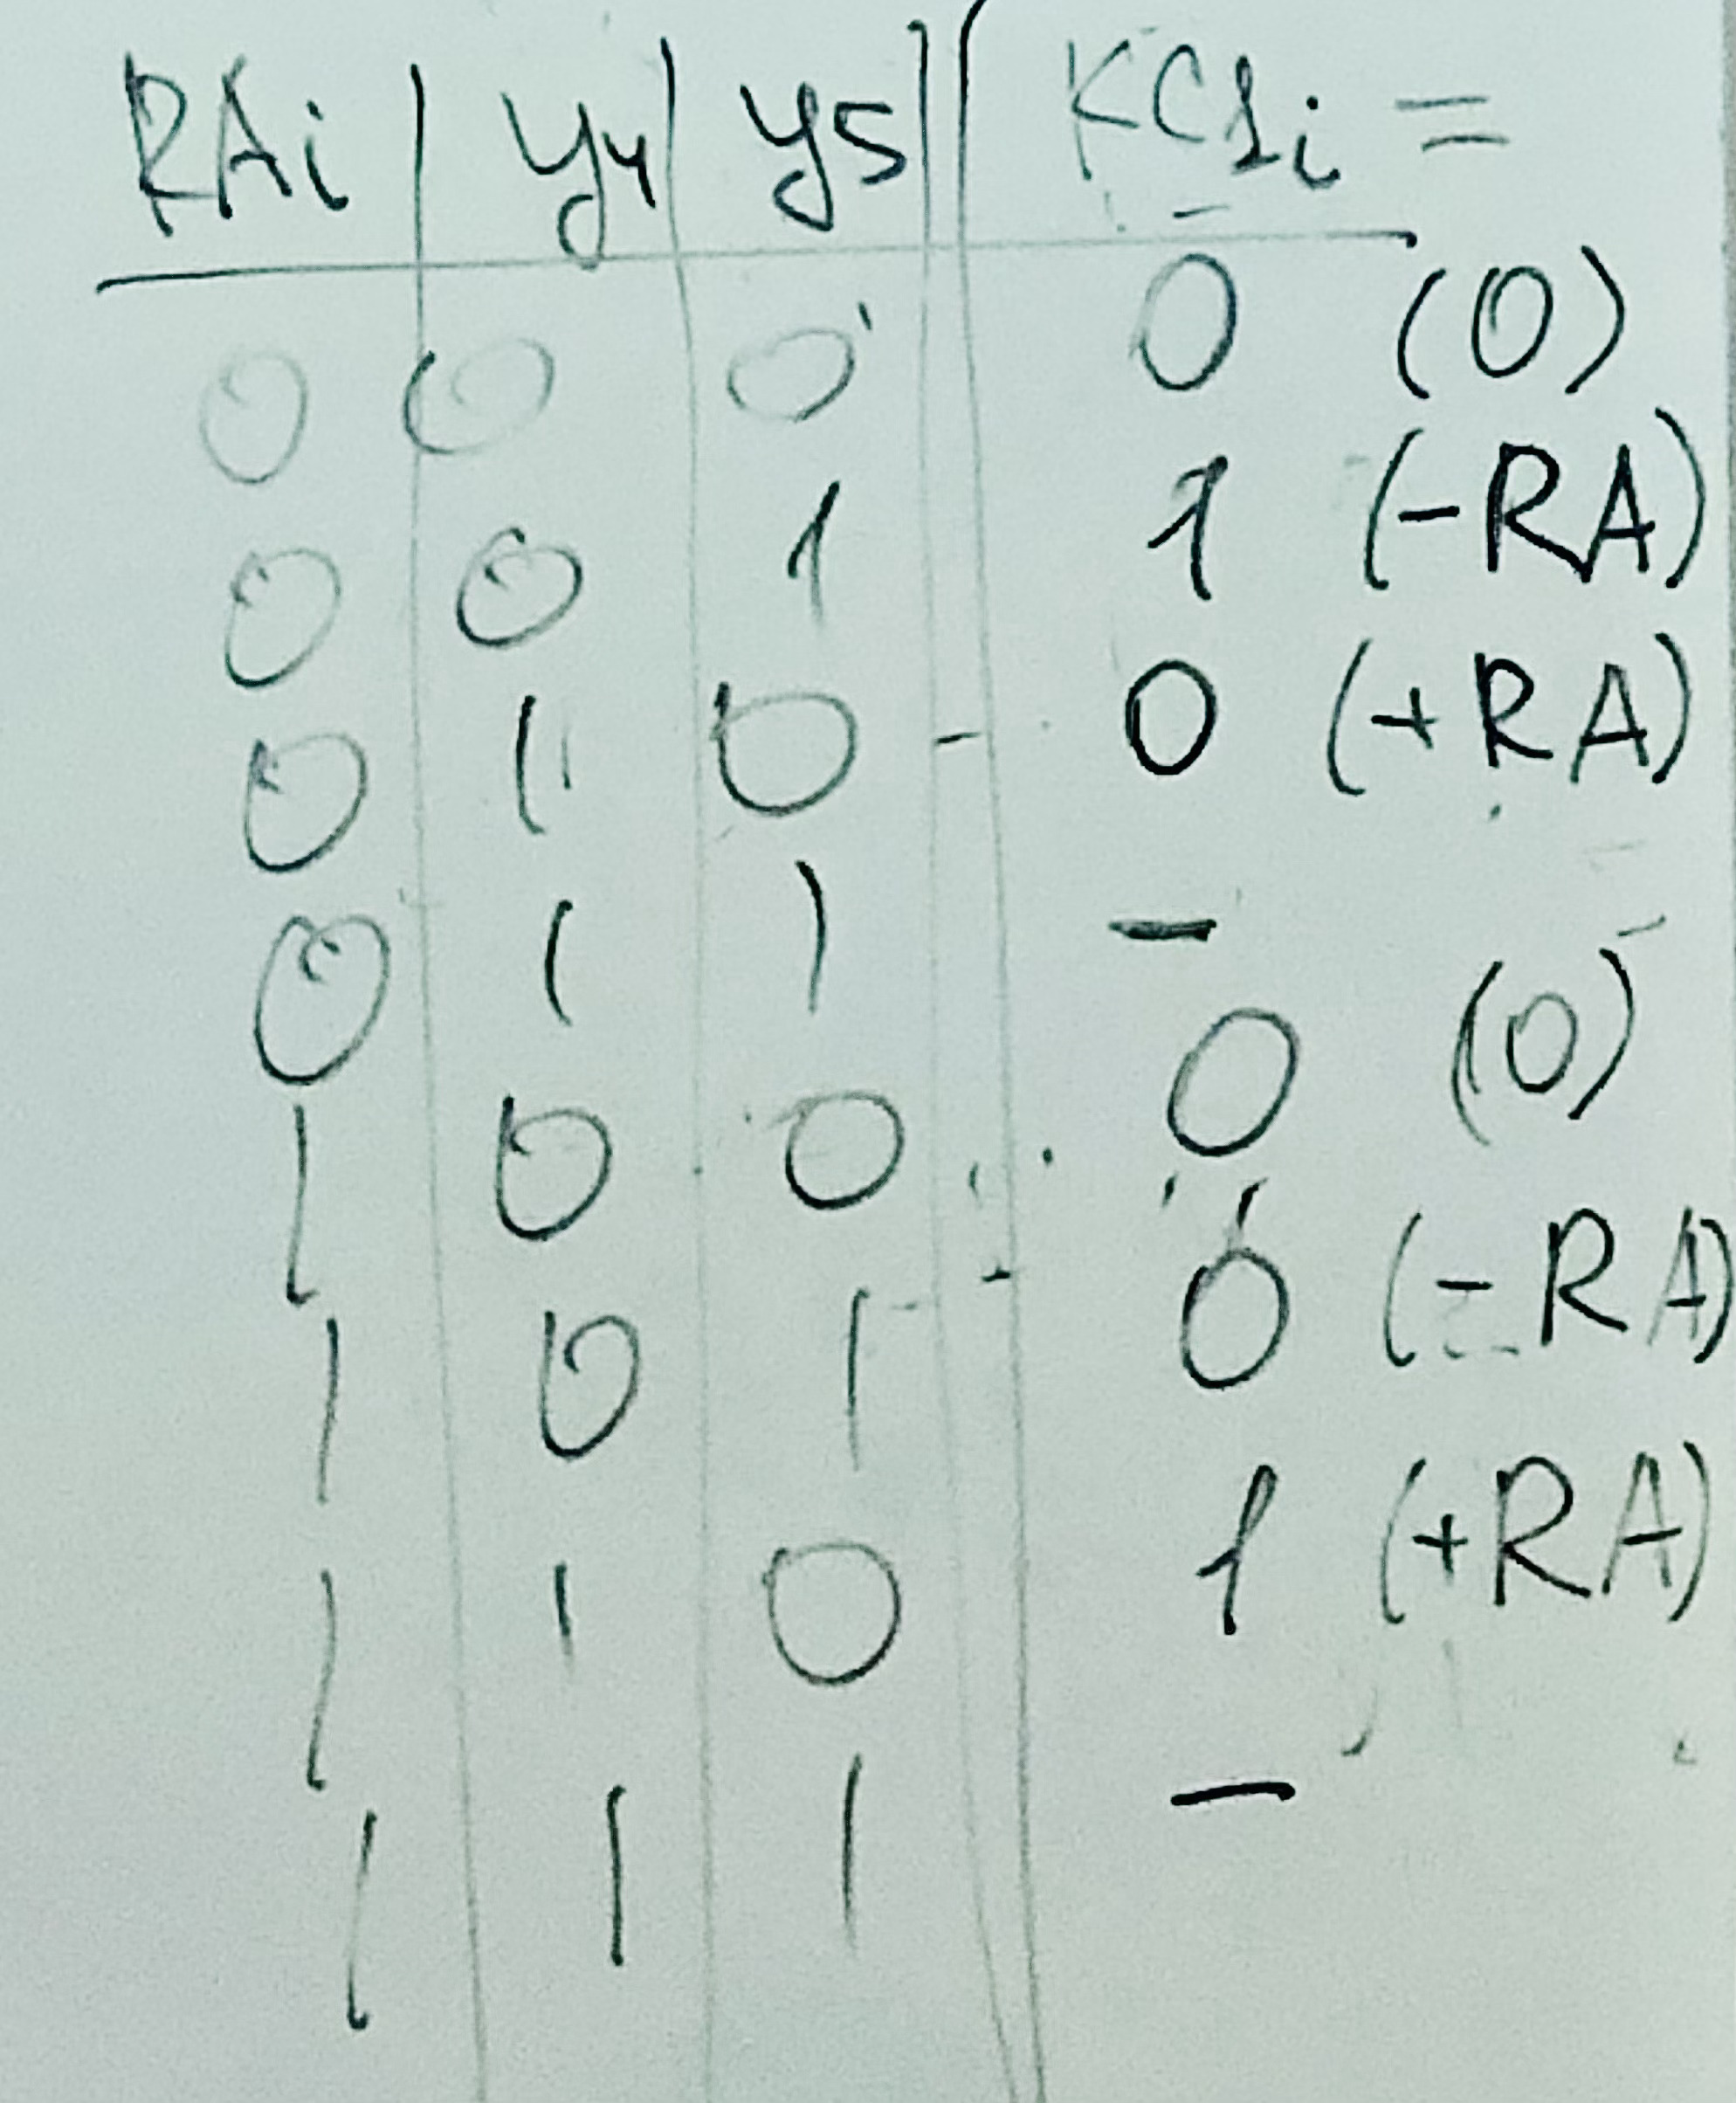 RAi | y4 | y5 || КС1i =
0 0 0 0 (0)
0 0 1 1 (-RA)
0 1 0 0 (+RA)
0 1 1 -
1 0 0 0 (0)
1 0 1 0 (-RA)
1 1 0 1 (+RA)
1 1 1 -